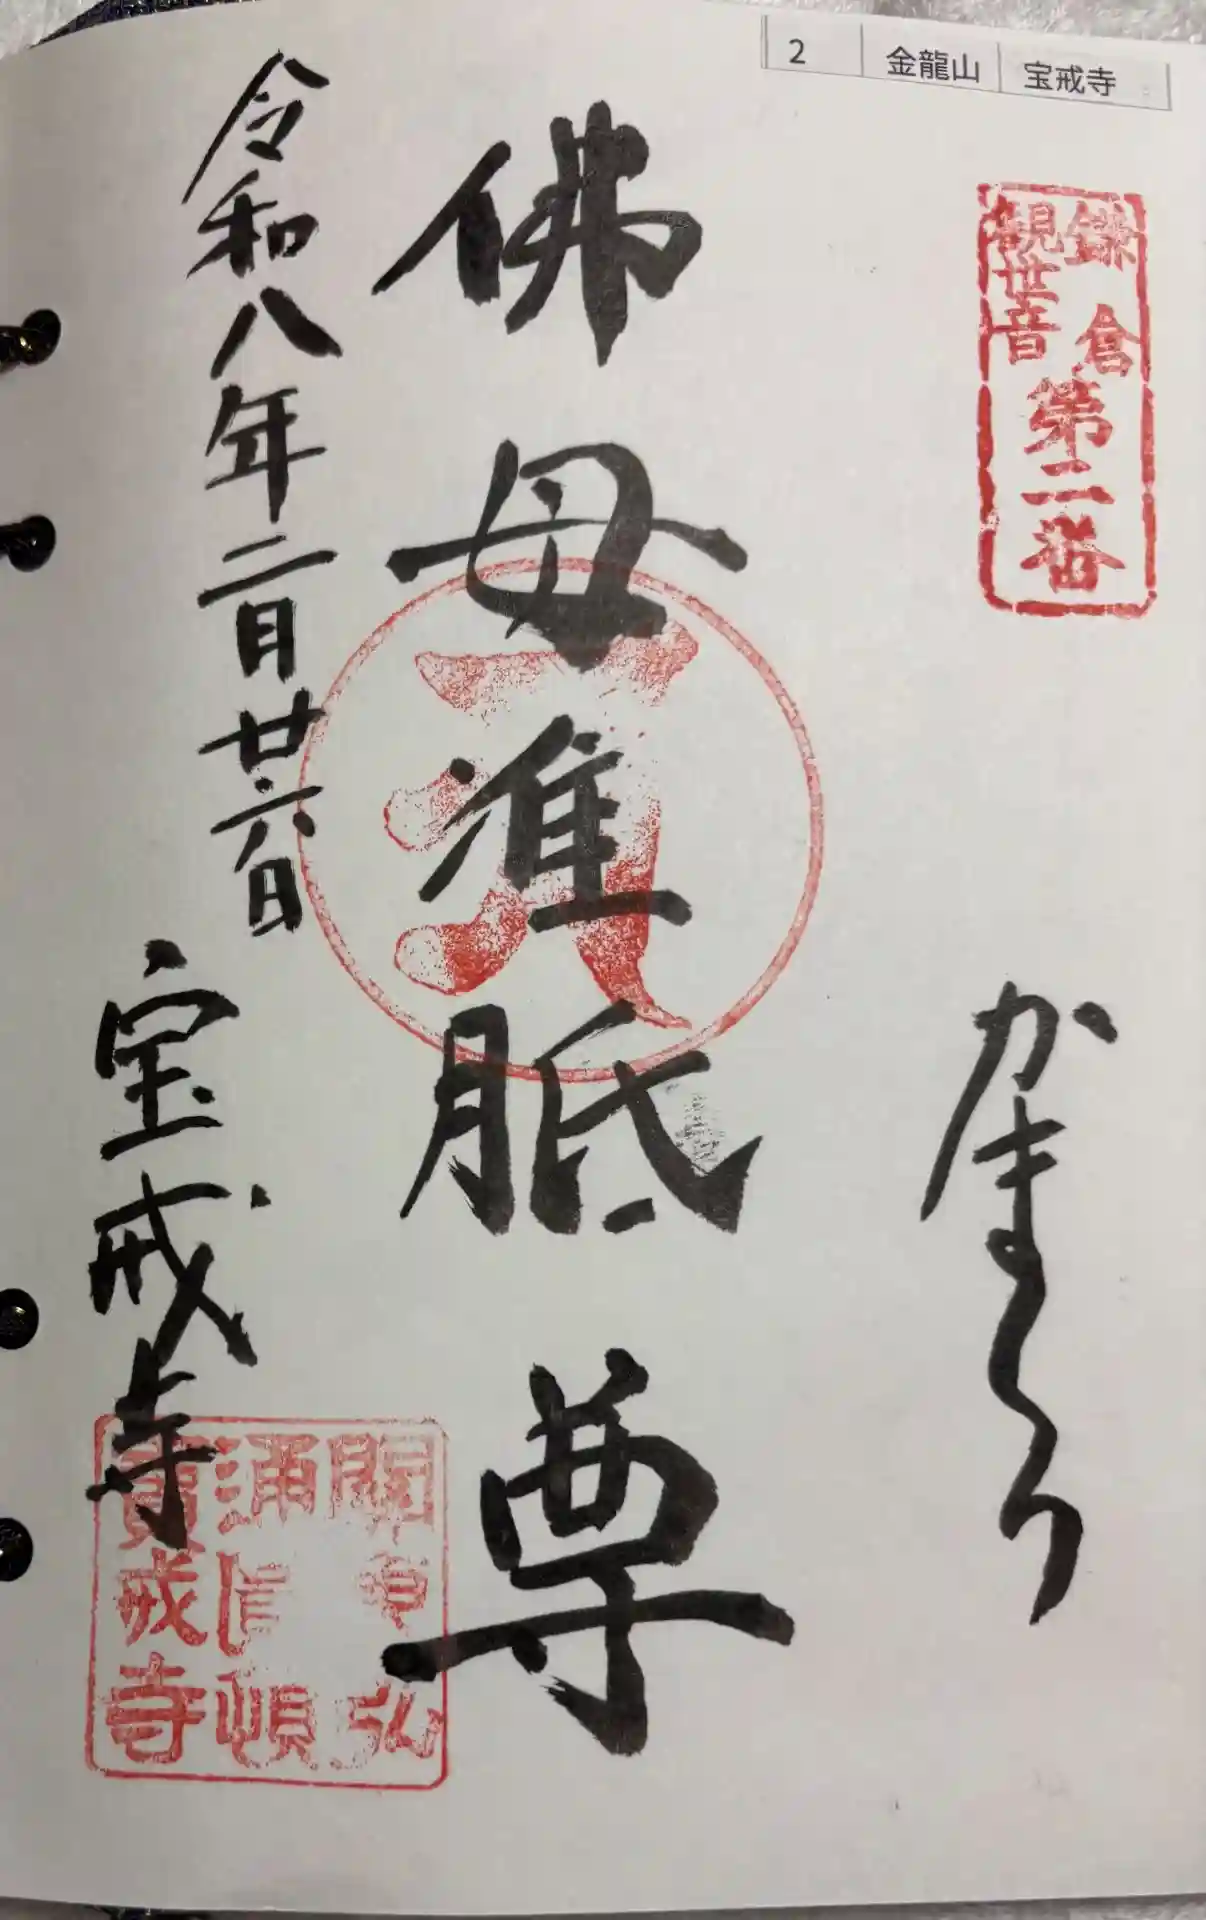 2 金龍山 宝戒寺
鎌倉
観世音
第二番
かまくら
佛母准胝尊
令和八年二月廿六日
宝戒寺
寶戒寺